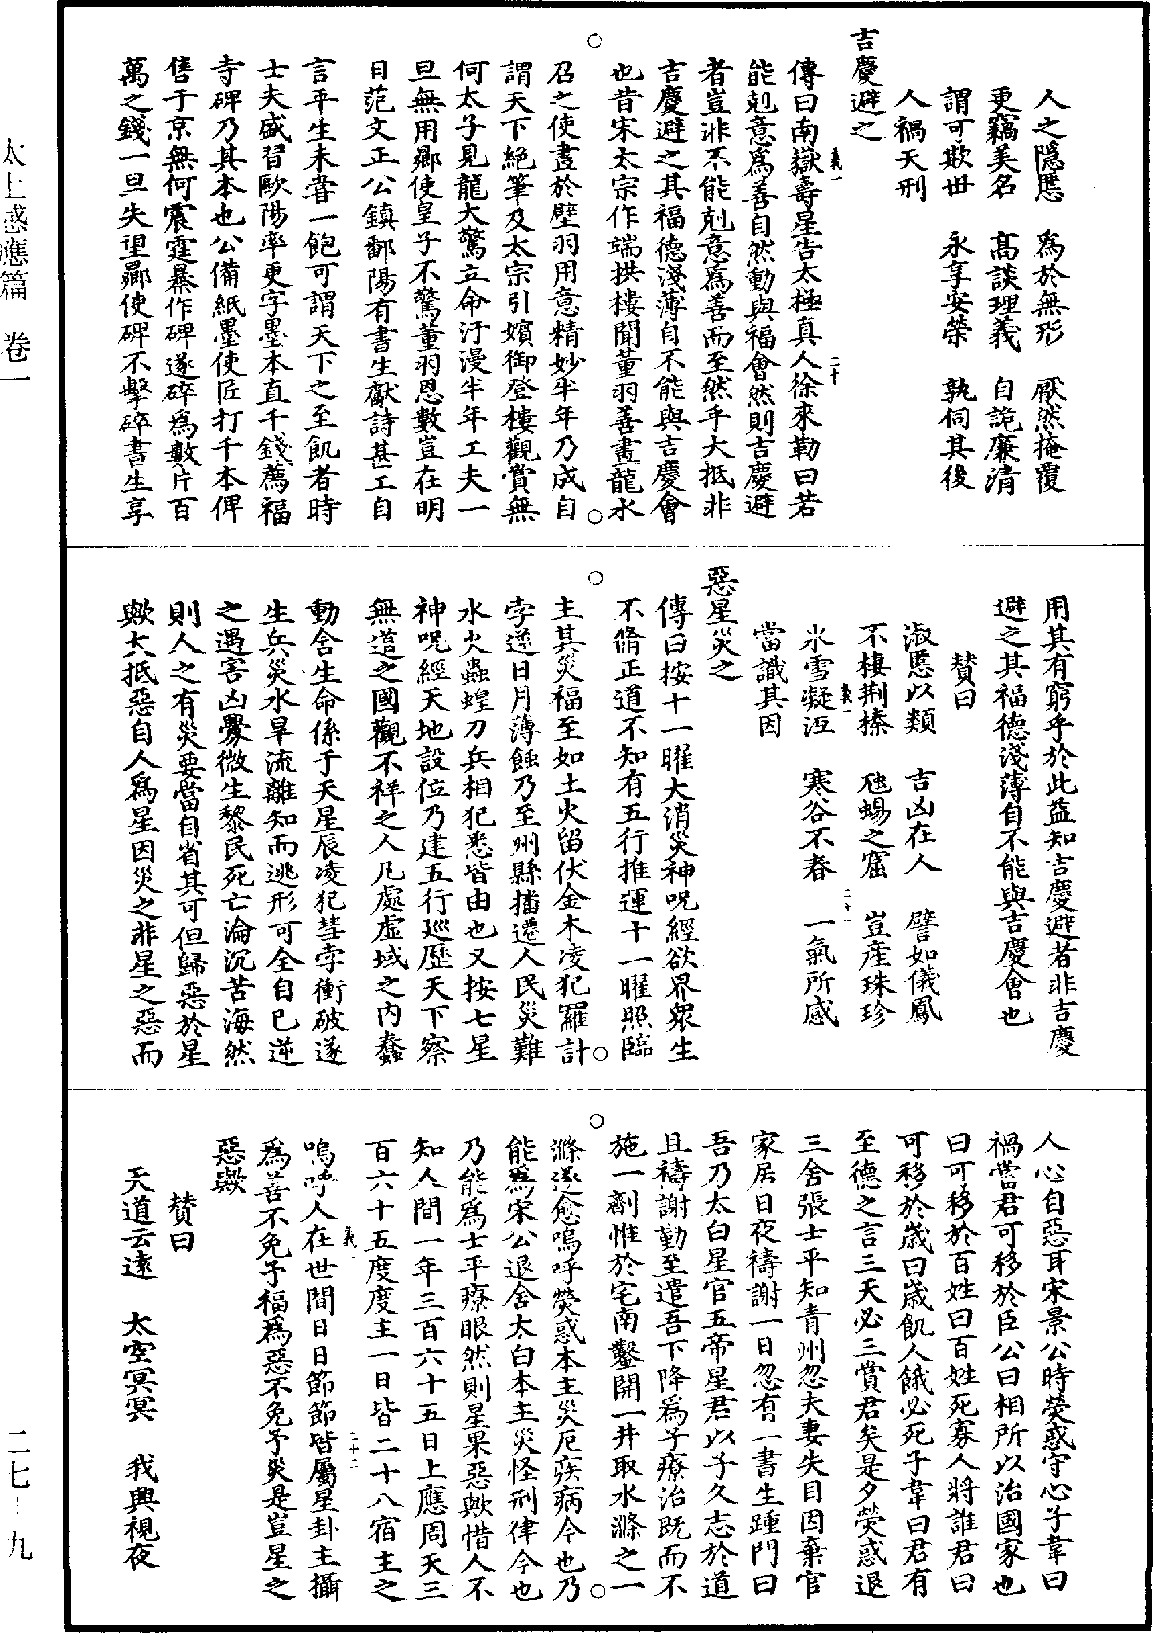 人之隱慝　為於無形　厭然掩覆
更竊美名　高談理義　自詭廉清
謂可欺世　永享安榮　孰伺其後
人禍天刑
吉慶避之
傳曰南嶽壽星告太極真人徐來勒曰若
能剋意為善自然動與福會然則吉慶避
者豈非不能剋意為善而至然乎大抵非
吉慶避之其福德淺薄自不能與吉慶會
也昔宋太宗作端拱樓聞董羽善畫龍水
召之使畫於壁羽用意精妙半年乃成自
謂天下絕筆及太宗引嬪御登樓觀賞無
何太子見龍大驚立命汙漫半年工夫一
旦無用嚮使皇子不驚董羽恩數豈在明
日范文正公鎮鄱陽有書生獻詩甚工自
言平生未嘗一飽可謂天下之至飢者時
士夫盛習歐陽率更字墨本直千錢薦福
寺碑乃其本也公備紙墨使匠打千本俾
售于京無何震霆暴作碑遂碎為數片百
萬之錢一旦失望嚮使碑不擊碎書生享
用其有窮乎於此益知吉慶避者非吉慶
避之其福德淺薄自不能與吉慶會也
贊曰
淑慝以類　吉凶在人　譬如儀鳳
不棲荊榛　虺蜴之窟　豈產珠珍
氷雪凝沍　寒谷不春　一氣所感
當識其因
惡星災之
傳曰按十一曜大消災神呪經欲界眾生
不脩正道不知有五行推運十一曜照臨
主其災福至如土火留伏金木凌犯羅計
孛逆日月薄蝕乃至州縣播遷人民災難
水火蟲蝗刀兵相犯悉皆由也又按七星
神呪經天地設位乃建五行巡歷天下察
無道之國觀不祥之人凡處虛域之內蠢
動含生命係于天星辰凌犯彗孛衝破遂
生兵災水旱流離知而逃形可全自已逆
之遇害凶釁微生黎民死亡淪沉苦海然
則人之有災要當自省其可但歸惡於星
歟大抵惡自人為星因災之非星之惡而
人心自惡耳宋景公時熒惑守心子韋曰
禍當君可移於臣公曰相所以治國家也
曰可移於百姓曰百姓死寡人將誰君曰
可移於歲曰歲飢人餓必死子韋曰君有
至德之言三天必三賞君矣是夕熒惑退
三舍張士平知青州忽夫妻失目因棄官
家居日夜禱謝一日忽有一書生踵門曰
吾乃太白星官五帝星君以子久志於道
且禱謝勤至遣吾下降為子療治既而不
施一劑惟於宅南鑿開一井取水滌之一
滌遂愈嗚呼熒惑本主災厄疾病今也乃
能為宋公退舍太白本主災怪刑律今也
乃能為士平療眼然則星果惡歟惜人不
知人間一年三百六十五日上應周天三
百六十五度度主一日皆二十八宿主之
嗚呼人在世間日日節節皆屬星卦主攝
為善不免予福為惡不免予災是豈星之
惡歟
贊曰
天道云遠　太空冥冥　我興視夜
太上感應篇　卷一
二七—九
義一　二十
義一　二十一
義一　二十二